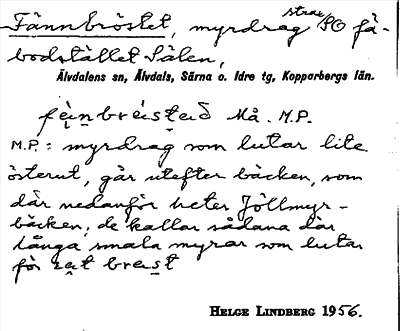 Fännbröstet, myrdrag strax SO fä-
bodstället Sälen,
Älvdalens sn, Älvdals, Särna o. Idre tg, Kopparbergs län.
Må. M.P.
M.P.: myrdrag som lutar lite
österut, går utefter bäcken, som
där nedanför heter Jöllmyr-
bäcken; de kallar sådana där
långa smala myrar som lutar
för
HELGE LINDBERG 1956.